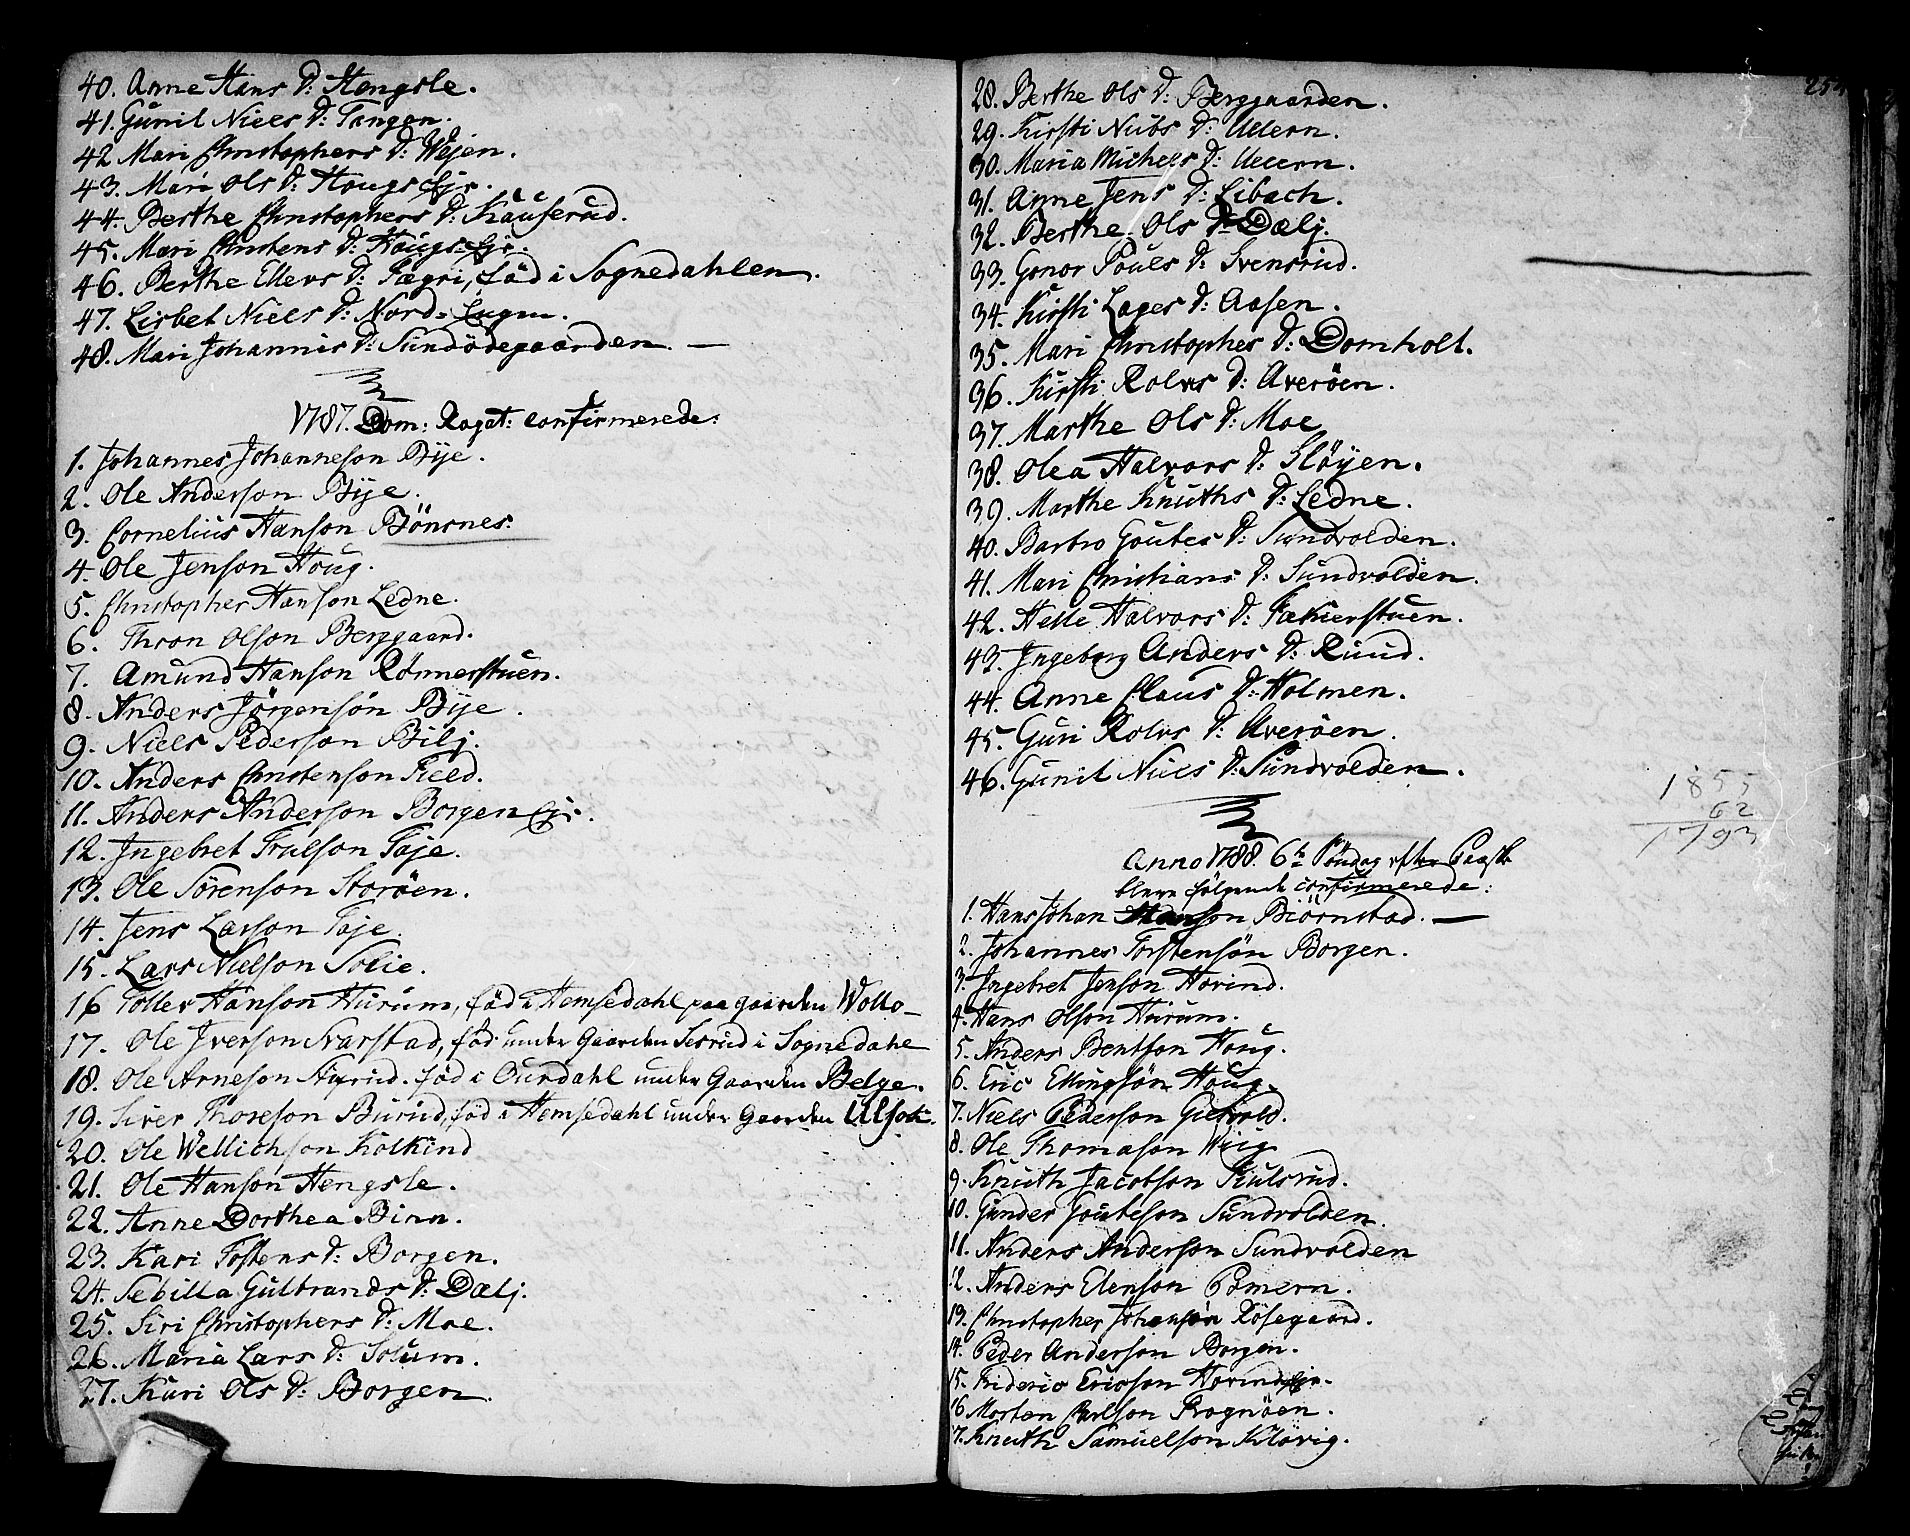 40. Anne Hans D: Hengsle.
41. Gunil Niels D: Tangen.
42 Mari Christophers D: Wejen.
43. Mari Ols D: Hougs Ejr.
44. Berthe Christophers D: Kåuserud.
45. Mari Christens D: Hougs Ejr.
46. Berthe Ellevs D: Fægri, föd i Sognedahlen.
47. Lisbet Niels D: Nord-
48. Mari Johannis D: Sundödegaarden. —
1787. Dom: Rogat: confirmerede:
1. Johannes Johanneson Bÿe.
2. Ole Anderson Bÿe.
3. Cornelius Hanson Bönsnes:
4. Ole Jenson Houg.
5. Christopher Hanson Ledne.
6. Thron Olson Berggaard.
7. Amund Hanson Rönnerstuen.
8. Anders Jörgensön Bÿe.
9. Niels Pederson Bilj.
10. Anders Christenson Field.
11. Anders Anderson Borgen Ejr.
12. Ingebret Trulson Faje.
13. Ole Sörenson Storöen.
14. Jens Larson Faje.
15. Lars Nielson Solie.
16 Toller Hanson Hurum, föd i Hemsedahl paa gaarden Wollo-
17. Ole Iverson Svarstad, föd under Gaarden Sesrud i Sognedahl
18. Ole Arneson föd i Ourdahl under Gaarden Belge.
19. Siver Thoreson Burud, föd i Hemsedahl under Gaarden Ulsok.
20. Ole Wellichson Kolkind
21. Ole Hanson Hengsle.
22. Anne Dorthea Binn.
23. Kari Tostens D: Borgen.
24. Sebilla Gulbrands D: Dælj.
25. Siri Christophers D: Moe.
26. Maria Lars D: Solum.
27. Kari Ols D: Borgen.
28. Berthe Ols D: Berggaarden.
29. Kirsti Nubs D: Ullern.
30. Maria Michels D: Ullern.
31. Anne Jens D: Libach.
32. Berthe Ols D: Dælj.
33. Gonor Pouls D: Svensrud.
34. Kirsti Lages D: Aasen.
35. Mari Christophes D: Domholt.
36. Kirsti Rolvs D: Averöen.
37. Marthe Ols D: Moe
38. Olea Halvors D: Slöyen.
39. Marthe Knuths D: Ledne.
40. Barbro Goutes D: Sundvolden.
41. Mari Christians D: Sundvolden.
42. Helle Halvors D: Fakierstuen.
43. Ingeborg Anders D: Ruud.
44. Anne Claus D: Holmen.
45. Guri Rolvs D: Averöen.
46. Gunil Niels D: Sundvolden.
1855
62
1793
Anno 1788. 6te Söndag efter Paaske
bleve fölgende confirmerede:
1. Hans Johan Hanson Biörnstad. —
2. Johannes Torstensön Borgen.
3. Ingebret Jenson Hovind.
4. Hans Olson Hurum.
5. Anders Bentson Houg.
6. Eric Ellingsön Houg.
7. Niels Pederson Gietvold.
8. Ole Thomason Wiig
9. Knuth Jacobson Kulsrud.
10. Gunder Gouteson Sundvolden.
11. Anders Anderson Sundvolden
12. Anders Elenson Pomern.
13. Christopher Johansön Rösegaard.
14. Peder Anderson Borgen.
15. Friderio Ericson Hovinds Ejr.
16 Morten Carlson Rognöen.
17. Knuth Samuelson Klövig.